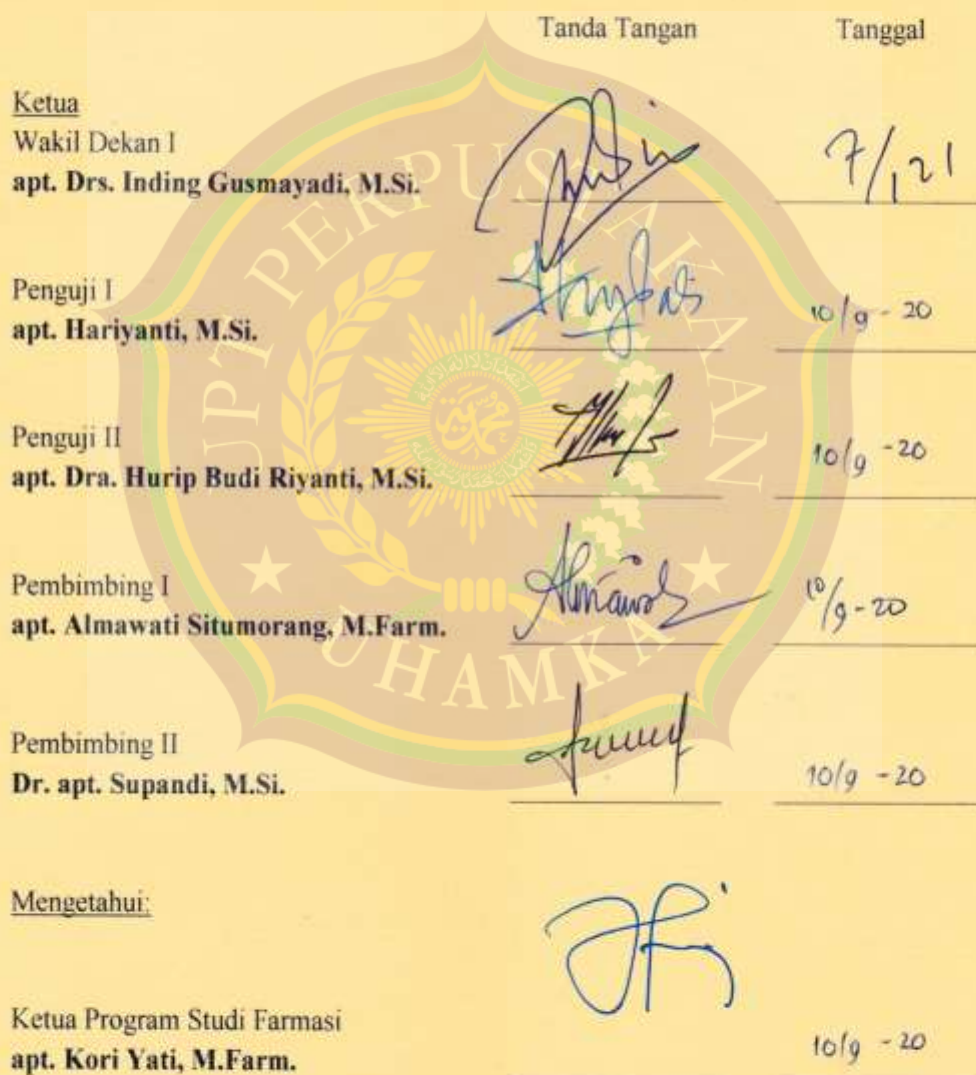 Tanda Tangan Tanggal
Ketua
Wakil Dekan I
apt. Drs. Inding Gusmayadi, M.Si. 7/1 21
Penguji I
apt. Hariyanti, M.Si. 10/9 - 20
Penguji II
apt. Dra. Hurip Budi Riyanti, M.Si. 10/9 - 20
Pembimbing I
apt. Almawati Situmorang, M.Farm. 10/9 - 20
Pembimbing II
Dr. apt. Supandi, M.Si. 10/9 - 20
Mengetahui:
Ketua Program Studi Farmasi
apt. Kori Yati, M.Farm. 10/9 - 20
UPT PERPUSTAKAAN
UHAMKA